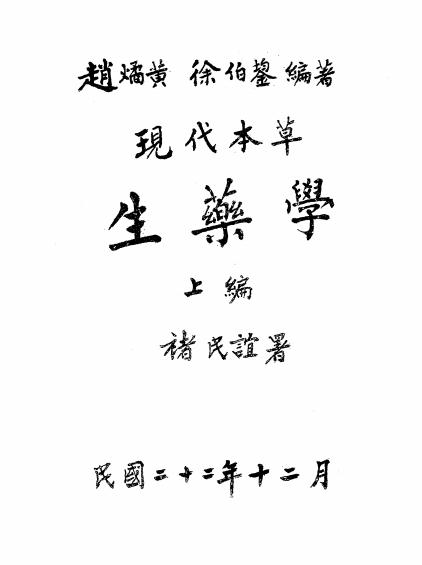 趙燏黃 徐伯鋆 編著
現代本草
生藥學
上編
褚民誼署
民國二十二年十二月